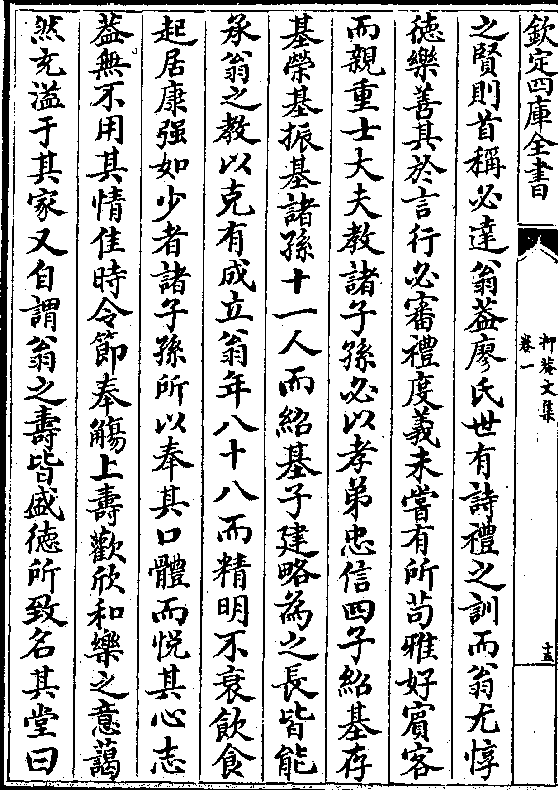 欽定四庫全書
抑菴文集
卷一
之賢則首稱必達翁葢廖氏世有詩禮之訓而翁尤惇
徳樂善其於言行必審禮度義未嘗有所苟雅好賓客
而親重士大夫教諸子孫必以孝弟忠信四子紹基存
基榮基振基諸孫十一人而紹基子建略為之長皆能
承翁之教以克有成立翁年八十八而精明不衰飲食
起居康强如少者諸子孫所以奉其口體而悦其心志
葢無不用其情佳時令節奉觴上壽歡欣和樂之意藹
然充溢于其家又自謂翁之壽皆盛徳所致名其堂曰